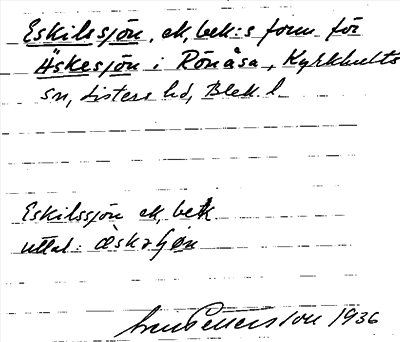 Eskilssjön, ek, bek:s form för
Äskesjön i Rönåsa, Kyrkhults
sn, Listers hd, Blek. l.
Eskilssjön ek, bek
uttal:
Pettersson 1936